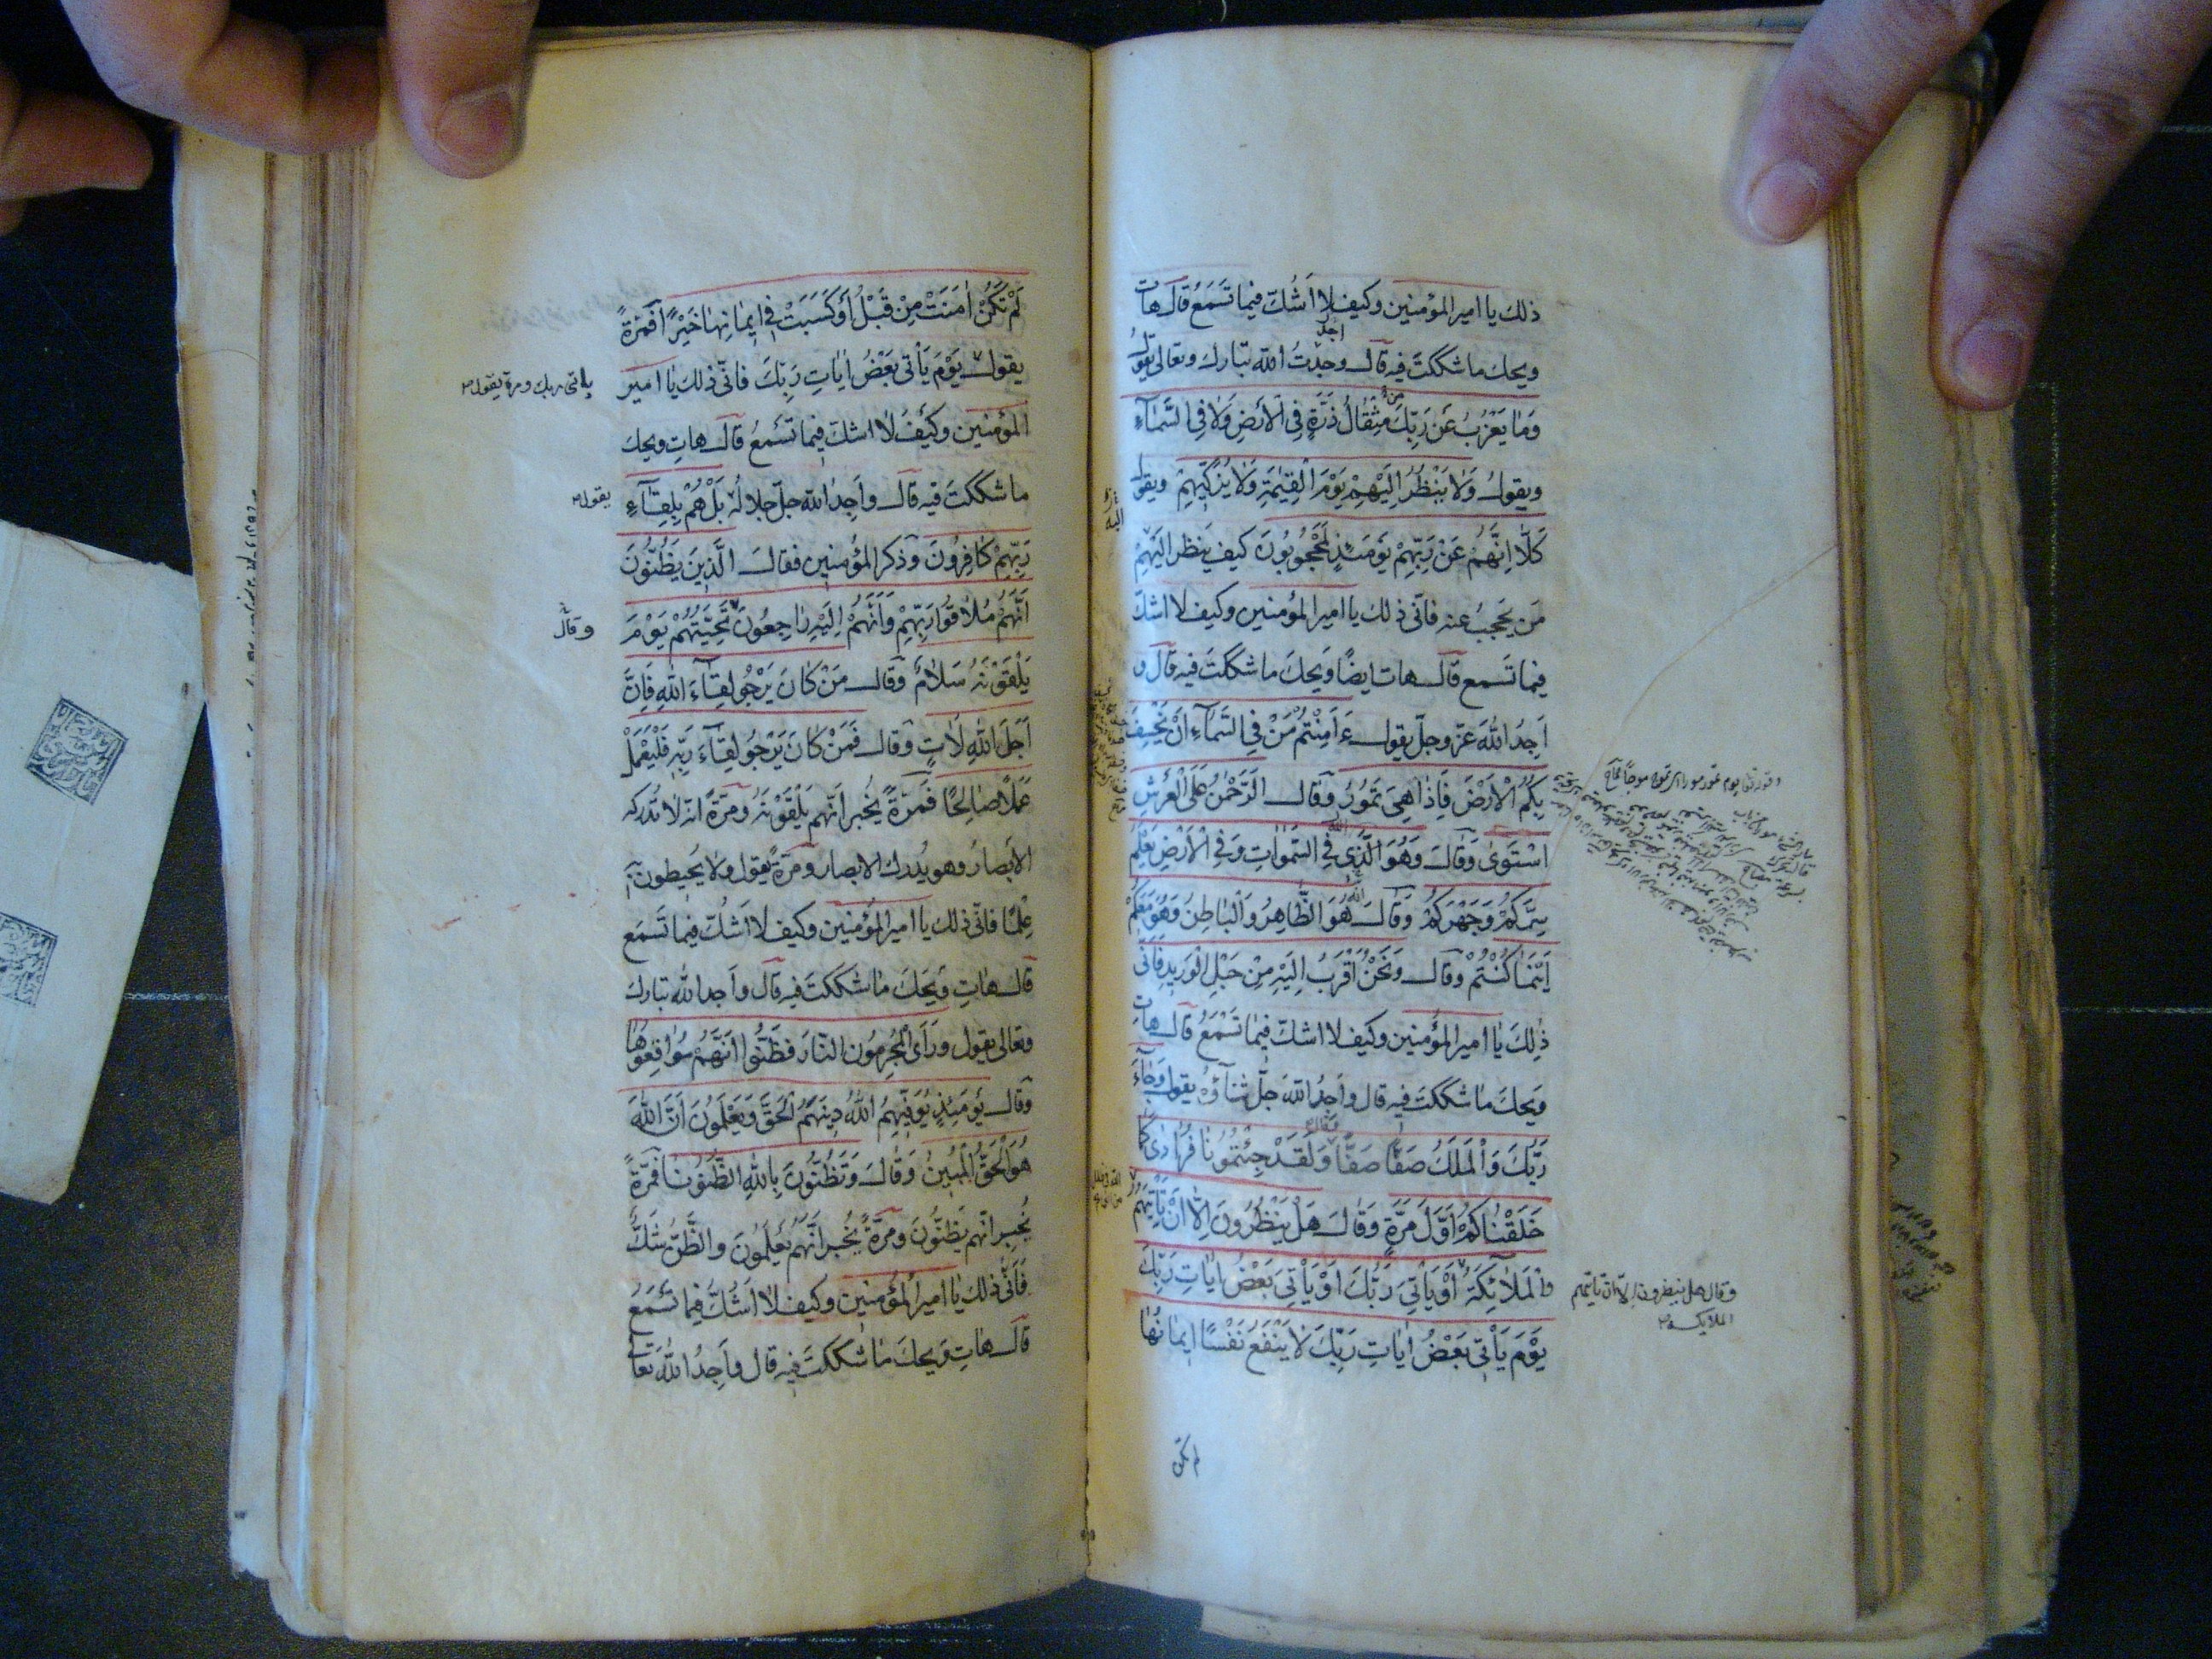 ذلك يا امير المؤمنين وكيف لا اشك فيما تسمع قال هات
اجد
ويحك ما شككت فيه قال وجدت الله تبارك وتعالى يقول
وَمَا يَعْزُبُ عَنْ رَبِّكَ مِنْ مِثْقَالِ ذَرَّةٍ فِي الْاَرْضِ وَلَا فِي السَّمَاءِ
ويقول وَلَا يَنْظُرُ اِلَيْهِمْ يَوْمَ الْقِيٰمَةِ وَلَا يُزَكِّيهِمْ ويقول
كَلَّا اِنَّهُمْ عَنْ رَبِّهِمْ يَوْمَئِذٍ لَمَحْجُوبُونَ كيف ينظر اليهم
مَن يحجب عنه فانّى ذلك يا امير المؤمنين وكيف لا اشك
فيما تسمع قال هات ايضًا ويحك ما شككت فيه قال و
اَجِدُ الله عزّ وجلّ يقول ءَاَمِنْتُمْ مَنْ فِي السَّمَاءِ اَنْ يَخْسِفَ
بِكُمُ الْاَرْضَ فَاِذَا هِيَ تَمُورُ وقال الرَّحْمٰنُ عَلَى الْعَرْشِ
اسْتَوٰى وَقَالَ وَهُوَ الَّذِي فِي السَّمٰوَاتِ وَفِي الْاَرْضِ يَعْلَمُ
الله
سِرَّكُمْ وَجَهْرَكُمْ وَقَالَ هُوَ الظَّاهِرُ وَالْبَاطِنُ وَهُوَ مَعَكُمْ
اَيْنَمَا كُنْتُمْ وقال وَنَحْنُ اَقْرَبُ اِلَيْهِ مِنْ حَبْلِ الْوَرِيدِ فَاَنّٰى
ذٰلِكَ يا امير المؤمنين وكيف لا اشكّ فيما تسمع قال هات
ويحك ما شككت فيه قال واجد الله جلّ ثناؤه يقول وَجَاءَ
رَبُّكَ وَالْمَلَكُ صَفًّا صَفًّا وَلَقَدْ جِئْتُمُونَا فُرَادٰى كَمَا
وقال
خَلَقْنَاكُمْ اَوَّلَ مَرَّةٍ وَقَالَ هَلْ يَنْظُرُونَ اِلَّا اَنْ يَأْتِيَهُمُ
وقال هل ينظرون الا ان تأتيهم
الملائكة
والْمَلَائِكَةُ اَوْ يَأْتِيَ رَبُّكَ اَوْ يَأْتِيَ بَعْضُ اٰيَاتِ رَبِّكَ
يَوْمَ يَأْتِي بَعْضُ اٰيَاتِ رَبِّكَ لَا يَنْفَعُ نَفْسًا اِيمَانُهَا
لم تكن
لَمْ تَكُنْ اٰمَنَتْ مِنْ قَبْلُ اَوْ كَسَبَتْ فِي اِيمَانِهَا خَيْرًا فَمَرَّةً
يقول يَوْمَ يَأْتِي بَعْضُ اٰيَاتِ رَبِّكَ فانّى ذلك يا امير
يأتي ربك ومرة يقول
المؤمنين وكيف لا اشك فيما تسمع قال هاتِ ويحك
ما شككت فيه قال واَجِدُ الله جلّ جلاله بَلْ هُمْ بِلِقَاءِ
يقول
رَبِّهِمْ كَافِرُونَ وذكر المؤمنين فقال الَّذِينَ يَظُنُّونَ
اَنَّهُمْ مُلَاقُوا رَبِّهِمْ وَاَنَّهُمْ اِلَيْهِ رَاجِعُونَ تَحِيَّتُهُمْ يَوْمَ
وقال
يَلْقَوْنَهُ سَلَامٌ وَقَالَ مَنْ كَانَ يَرْجُو لِقَاءَ اللهِ فَاِنَّ
اَجَلَ اللهِ لَاٰتٍ وقال فَمَنْ كَانَ يَرْجُو لِقَاءَ رَبِّهِ فَلْيَعْمَلْ
عَمَلًا صَالِحًا فَمَرَّةً يُخبر اَنّهم يَلْقَوْنَهُ ومرّةً انّه لا تدركه
الابصار وهو يدرك الابصار ومرّة يقول ولا يحيطون به
عِلْمًا فانّى ذلك يا امير المؤمنين وكيف لا اشكّ فيما تسمع
قال هاتِ ويحك ما شككت فيه قال واجد الله تبارك
وتعالى يقول وَرَاَى الْمُجْرِمُونَ النَّارَ فَظَنُّوا اَنَّهُمْ مُوَاقِعُوهَا
وقال يَوْمَئِذٍ يُوَفِّيهِمُ اللهُ دِينَهُمُ الْحَقَّ وَيَعْلَمُونَ اَنَّ اللهَ
هُوَ الْحَقُّ الْمُبِينُ وَقَالَ وَتَظُنُّونَ بِاللهِ الظُّنُونَا فَمَرَّةً
يُخبر انّهم يظنّون ومرّةً يُخبر انّهم يعلمون والظّنّ شكّ
فانّى ذلك يا امير المؤمنين وكيف لا اشكّ فيما تسمع
قال هاتِ ويحك ما شككت فيه قال واَجِدُ الله تعالى